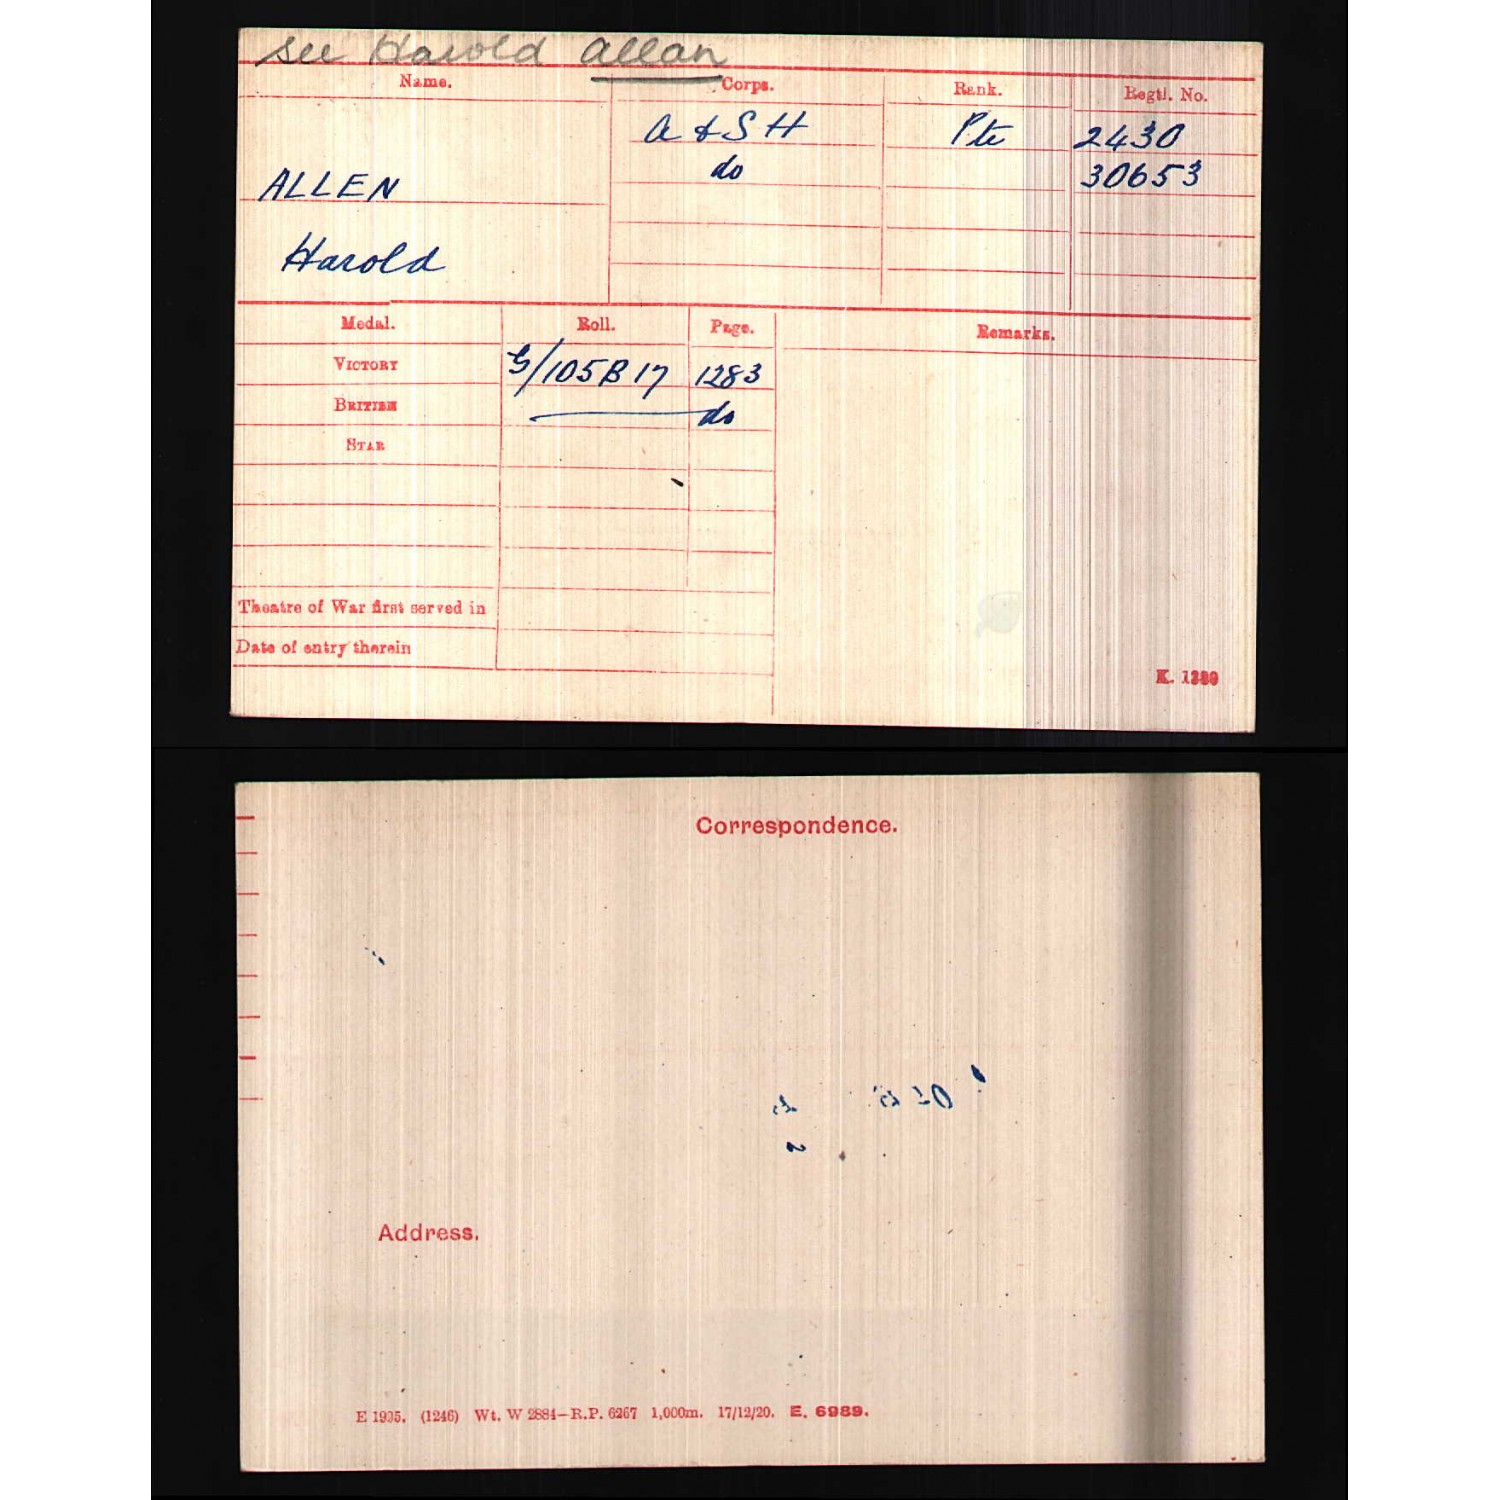 See Harold Allan
Name. Corps. Rank. Regtl. No.
A & S H Pte 2430
do 30653
ALLEN
Harold
Medal. Roll. Page. Remarks.
VICTORY G/105B17 1283
BRITISH do
STAR
Theatre of War first served in
Date of entry therein
K. 1380
Correspondence.
Address.
E 1935. (1246) Wt. W 2884—R.P. 6267 1,000m. 17/12/20. E. 6989.